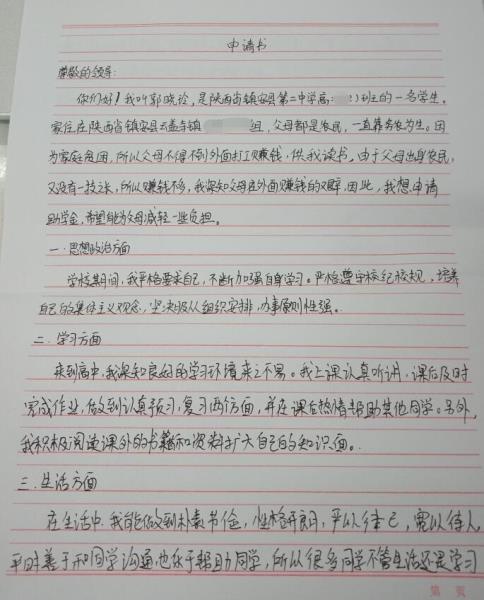 申请书
尊敬的领导:
你们好!我叫郭晓玲,是陕西省镇安县第二中学高 班的一名学生。
家住在陕西省镇安县云盖寺镇 组,父母都是农民,一直靠务农为生。因
为家庭贫困,所以父母不得不到外面打工赚钱,供我读书,由于父母出身农民,
又没有一技之长,所以赚钱不多,我深知父母在外面赚钱的艰辛,因此,我想申请
助学金,希望能为父母减轻一些负担。
一.思想政治方面
学校期间,我严格要求自己,不断加强自身学习。严格遵守校纪校规,培养
自己的集体主义观念,坚决服从组织安排,办事原则性强。
二.学习方面
来到高中,我深知良好的学习环境来之不易。我上课认真听讲,课后及时
完成作业,做到认真预习,复习两个方面,并在课后热情帮助其他同学。另外,
我积极阅读课外的书籍和资料扩大自己的知识面。
三.生活方面
在生活中,我能做到朴素节俭,性格开朗,严以律己,宽以待人,
平时善于和同学沟通,也乐于帮助同学,所以很多同学不管生活还是学习
第 页